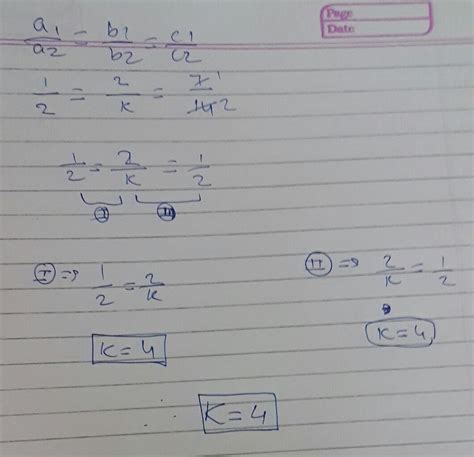 Page
Date
a1/a2 = b1/b2 = c1/c2
1/2 = 2/k = 7 1/14 2
1/2 = 2/k = 1/2
I II
I ⇒ 1/2 = 2/k
II ⇒ 2/k = 1/2
k = 4
k = 4
k = 4